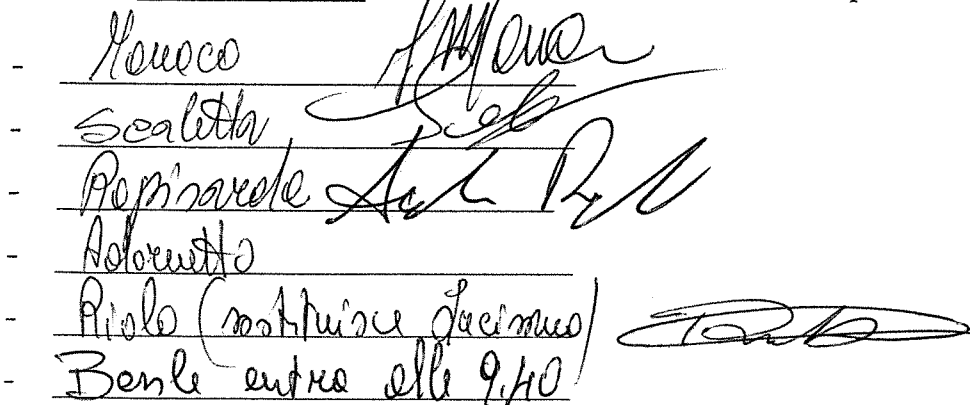 - Monaco
- Scaletta
- Rapisarda
- Adornetto
- Riolo (sostituisce Iacinno)
- Basile entra alle 9.40